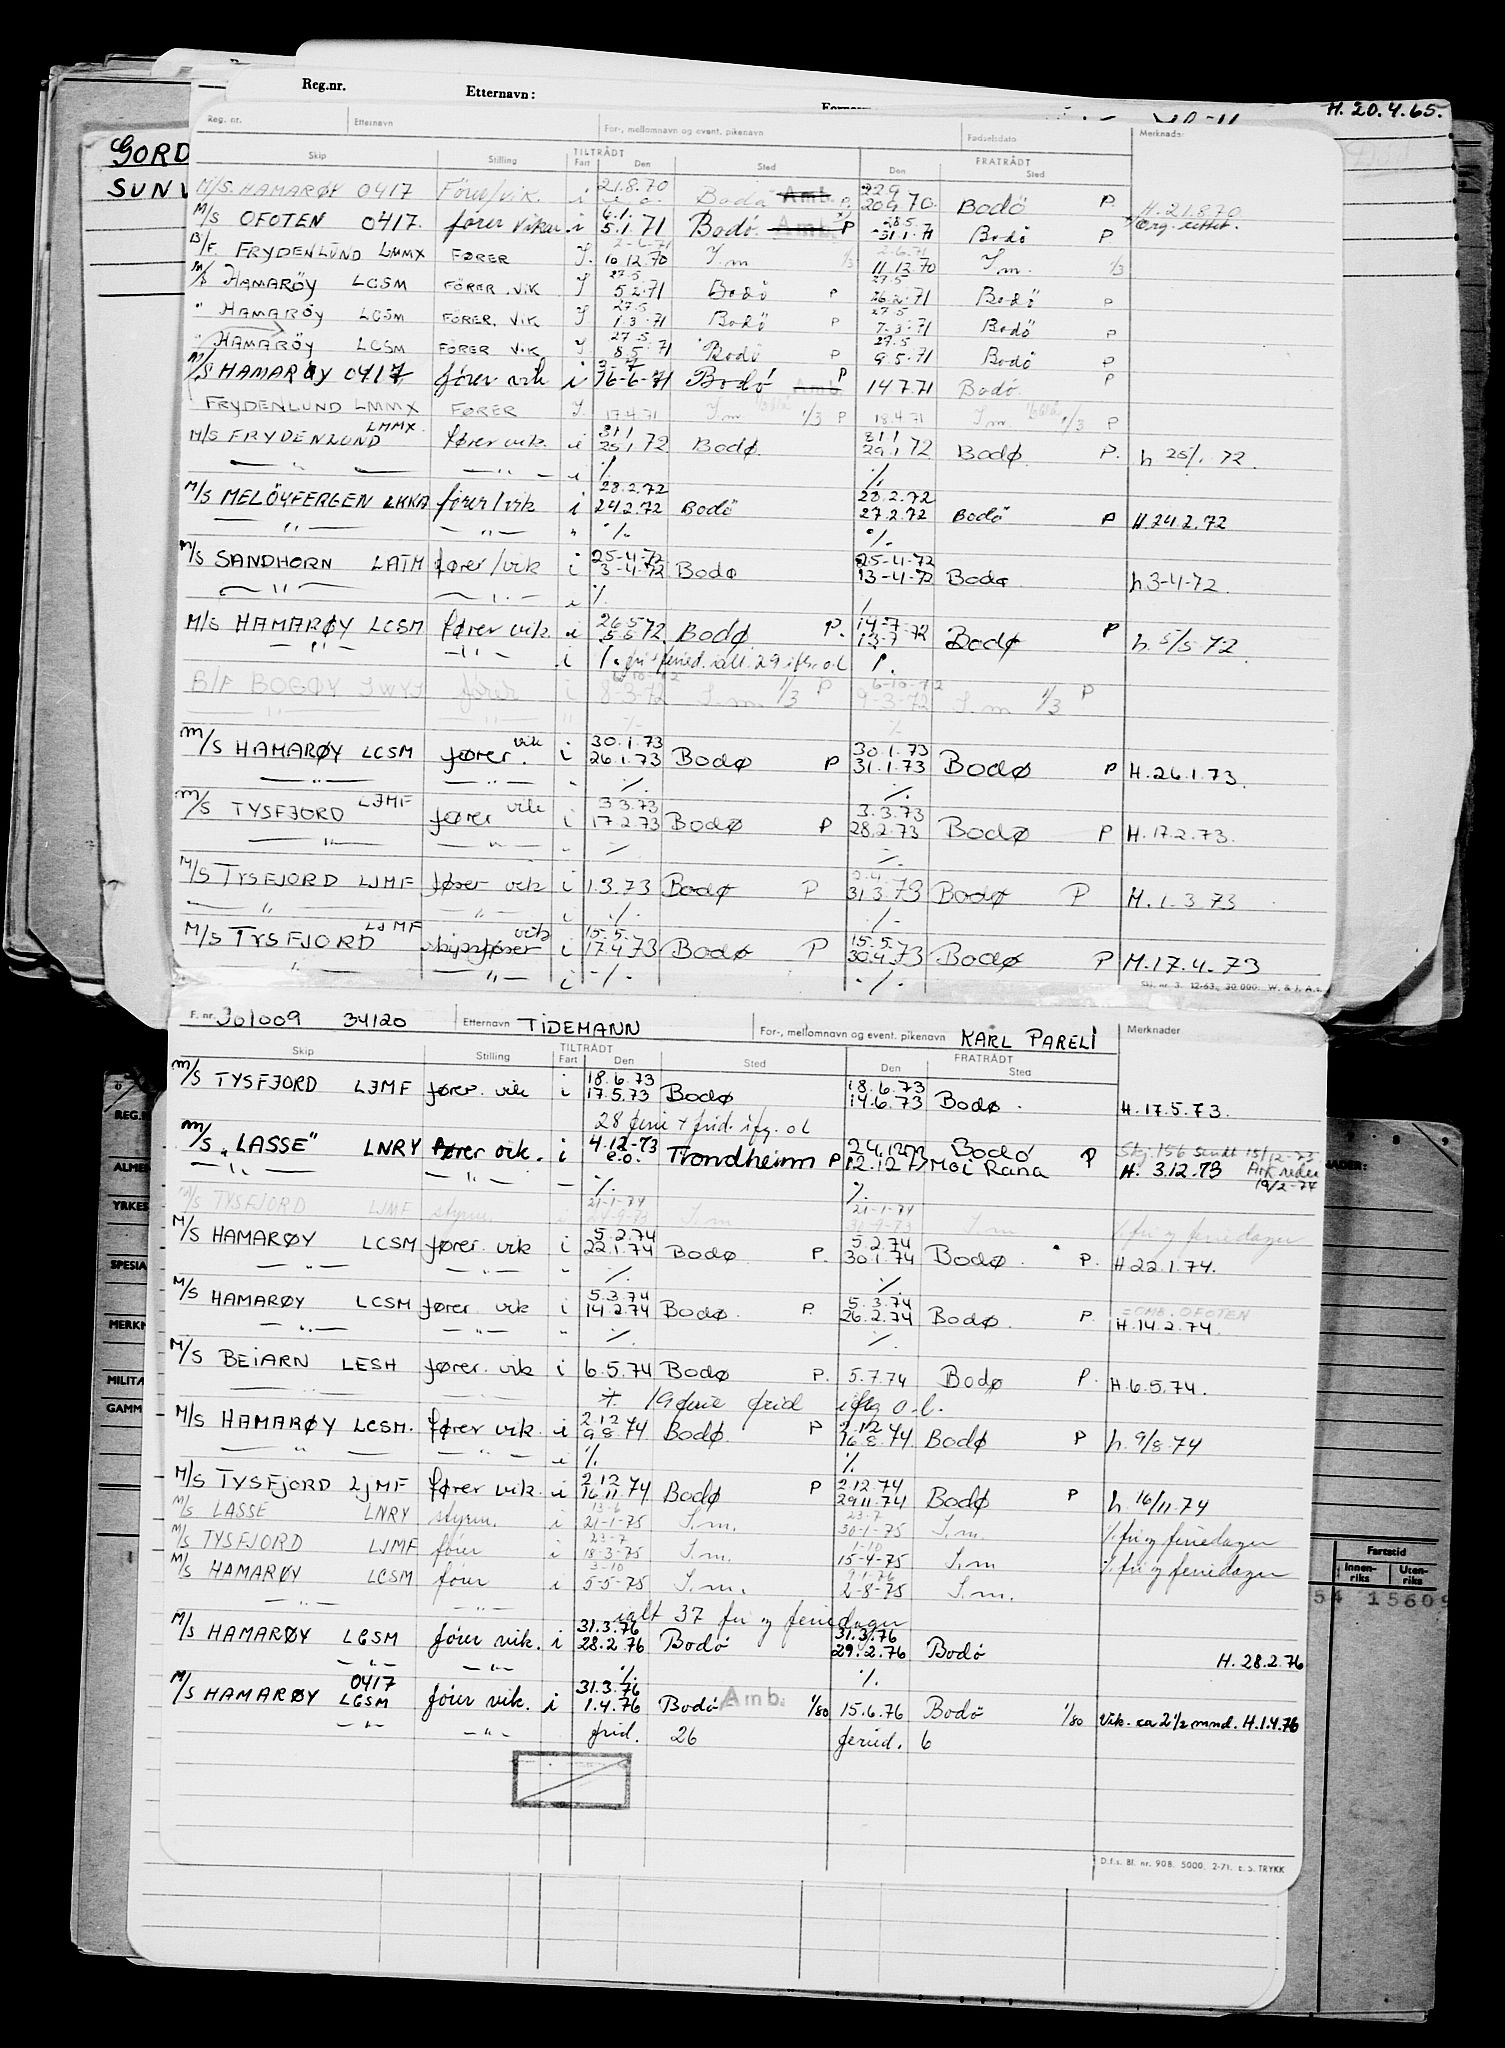 Reg.nr. Etternavn:
H. 20.4.65.
GORD
SUNV
Reg. nr. Etternavn For-, mellomnavn og event. pikenavn Fødselsdato Merknader
TILTRÅDT FRATRÅDT
Skip Stilling Fart Den Sted Den Sted
M/S. HAMARØY 0417 Fører/vik. i 21.8.70 Bodø Amb. P. 22.9 20.9.70. Bodö P. H. 21.8.70
M/S OFOTEN 0417. fører vikar i 6.1. 5.1.71 Bodø. Amb. P 28.5. 31.1.71 Bodö P
B/F. FRYDENLUND LMMX FØRER I. 10.12.70 I.m 1/3 11.12.70 I.m. 1/3
M/S HAMARÖY LCSM FÖRER. VIK I 27.5 5.2.71 Bodö P 27.5 26.2.71 Bodö P
" HAMARÖY LCSM FÖRER. VIK I 27.5 1.3.71 Bodö P 27.5 7.3.71 Bodö P
" HAMARÖY LCSM FÖRER VIK I 27.5. 8.5.71 Bodö P 27.5 9.5.71 Bodö P
M/S HAMARØY 0417 fører vik i 16-6-71 Bodö Amb. P 14.7.71 Bodö P
FRYDENLUND LMMX FØRER I. 17.4.71 I.m 1/3 P 18.4.71 I.m 1/3 P
M/S FRYDENLUND LMMX. fører vik. i 31.1 25.1.72 Bodø. 31.1 29.1.72 Bodø. P. h 25/1. 72.
— " — — " — i ./. ./.
M/S MELÖYFERGEN LKKA fører/vik i 28.2.72 24.2.72 Bodö 28.2.72 27.2.72 Bodö P H.24.2.72
— " — — " — " ./. ./.
M/S SANDHORN LATM fører/vik i 25-4-72 3-4-72 Bodø 25-4-72 13-4-72 Bodø h.3-4-72.
— " — — " — i ./. ./.
M/S HAMARØY LCSM fører vik. i 26.5 5.5.72. Bodø P. 14-7- 13-7-72 Bodø P h. 5/5 72.
— " — — " — i ./. fri + feried. ialt. 29 ifbr. o.l ./.
B/F BOGØY JWYJ fører i 8-3-72 I.m. 1/3 P 6-10-72 9-3-72 I.m 1/3 P
M/S HAMARØY LCSM fører. vik i 30.1.73 26.1.73 Bodø P 30.1.73 31.1.73 Bodø P H.26.1.73.
— " — — " — " ./. ./.
M/S TYSFJORD LJMF fører vik i 3.3.73 17.2.73 Bodø P 3.3.73 28.2.73 Bodø P H.17.2.73.
— " — — " — " ./. ./.
M/S TYSFJORD LJMF fører vik i 1.3.73 Bodø P 31.3.73 Bodø P H.1.3.73
— " — — " — i ./. ./.
M/S TYSFJORD LJMF skipsfører vik i 15.5. 17.4.73 Bodø P 15.5. 30.4.73 Bodø P H.17.4.73
— " — — " — i ./. ./.
Bl. nr. 3. 12-63, 30.000. W. & J. A.s.
F. nr. 301009 34120 Etternavn TIDEMANN For-, mellomnavn og event. pikenavn KARL PARELI Merknader
TILTRÅDT FRATRÅDT
Skip Stilling Fart Den Sted Den Sted
M/S TYSFJORD LJMF fører. vik i 18.6.73 17.5.73 Bodø 18.6.73 14.6.73 Bodø. H.17.5.73.
28 ferie + frid. ifg. o.l
M/S "LASSE" LNRY fører vik. i 4.12-73 e.o. Trondheim P 12.12.73 Bodö Moi Rana P Skj. 156 sendt 15/12-73 H. 3.12.73 19/2-74
— " — — " — — ./. ./.
M/S TYSFJORD LJMF styrm. 21-1-74 24-9-73 I.m 21-1-74 30-9-73 I.m ./. fri og feriedager
M/S HAMARØY LCSM fører. vik i 5.2.74 22.1.74 Bodø P. 5.2.74 30.1.74 Bodø. P. H.22.1.74.
— " — — " — " ./. ./.
M/S HAMARØY LCSM fører. vik i 5.3.74 14.2.74 Bodø. P. 5.3.74 26.2.74 Bodø. P. OMB. OFOTEN H.14.2.74.
— " — — " — " ./. ./.
M/S BEIARN LESH fører. vik i 6.5.74 Bodø P. 5.7.74 Bodø P. H.6.5.74.
19 ferie frid ifg o.l.
M/S HAMARØY LCSM. fører vik. i 2.12 9.8.74 Bodø P 2.12 16.8.74 Bodø P h. 9/8.74
— " — — " — i ./. ./.
M/S TYSFJORD LJMF fører vik. i 2.12 16.11.74 Bodø P 2.12.74 29.11.74 Bodø P h. 16/11.74
M/S LASSE LNRY styrm. i 13-6 21-1-75 I.m. 23-7 30-1-75 I.m. ./. fri og feriedager
M/S TYSFJORD LJMF fører i 23-7 18-3-75 I.m. 1-10 15-4-75 I.m ./. fri og feriedager
M/S HAMARØY LCSM fører i 3-10 5-5-75 I.m. 9-1-76 2-8-75 I.m. ./. fri og feriedager
— " — — " — ialt 37 fri og feriedager
M/S HAMARØY LCSM fører vik. i 31.3.76 28.2.76 Bodö 31.3.76 29.2.76 Bodö H. 28.2.76
— " — — " — ./. ./.
M/S HAMARØY 0417 LCSM fører vik. i 31.3.76 1.4.76 Bodö Amb. 1/80 15.6.76 Bodö 1/80 Vik. ca 2 1/2 mnd. H.1.4.76
— " — — " — frid. 26 feried. 6
D.f.s. Bl. nr. 908. 5000. 2-71. E. S. TRYKK
REG.
ALMEN
YRKES
SPESIA
MERKN
MILITÆ
GAMM
8 9
NADER:
Fartstid
Innen-riks Uten-riks
54 15609